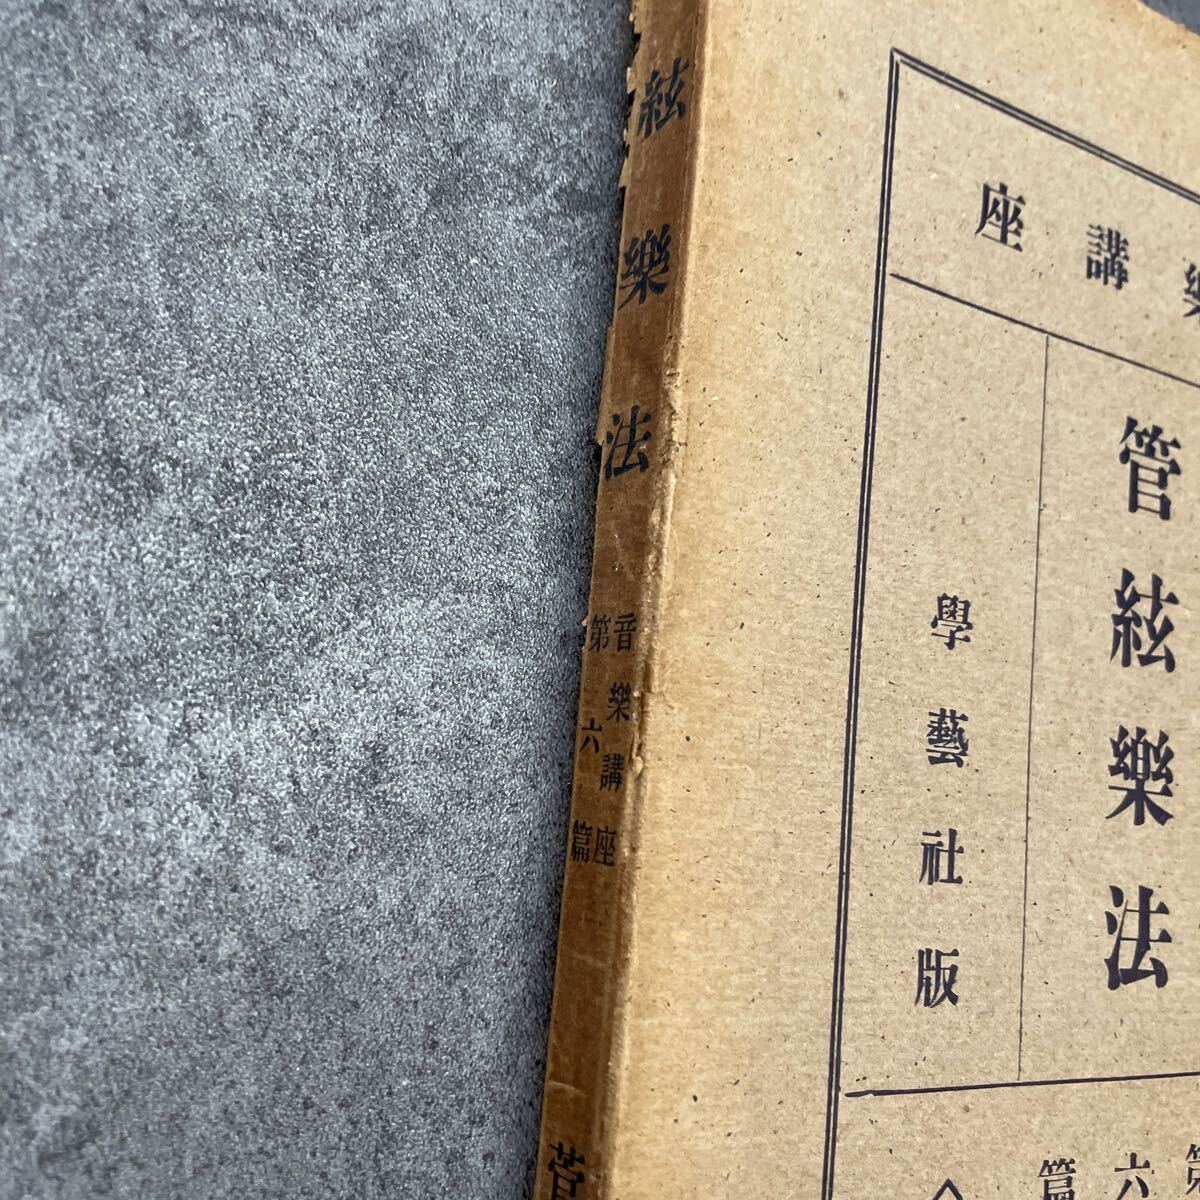 絃樂法
音樂講座
第六篇
菅
樂講座
管絃樂法
學藝社版
第六篇